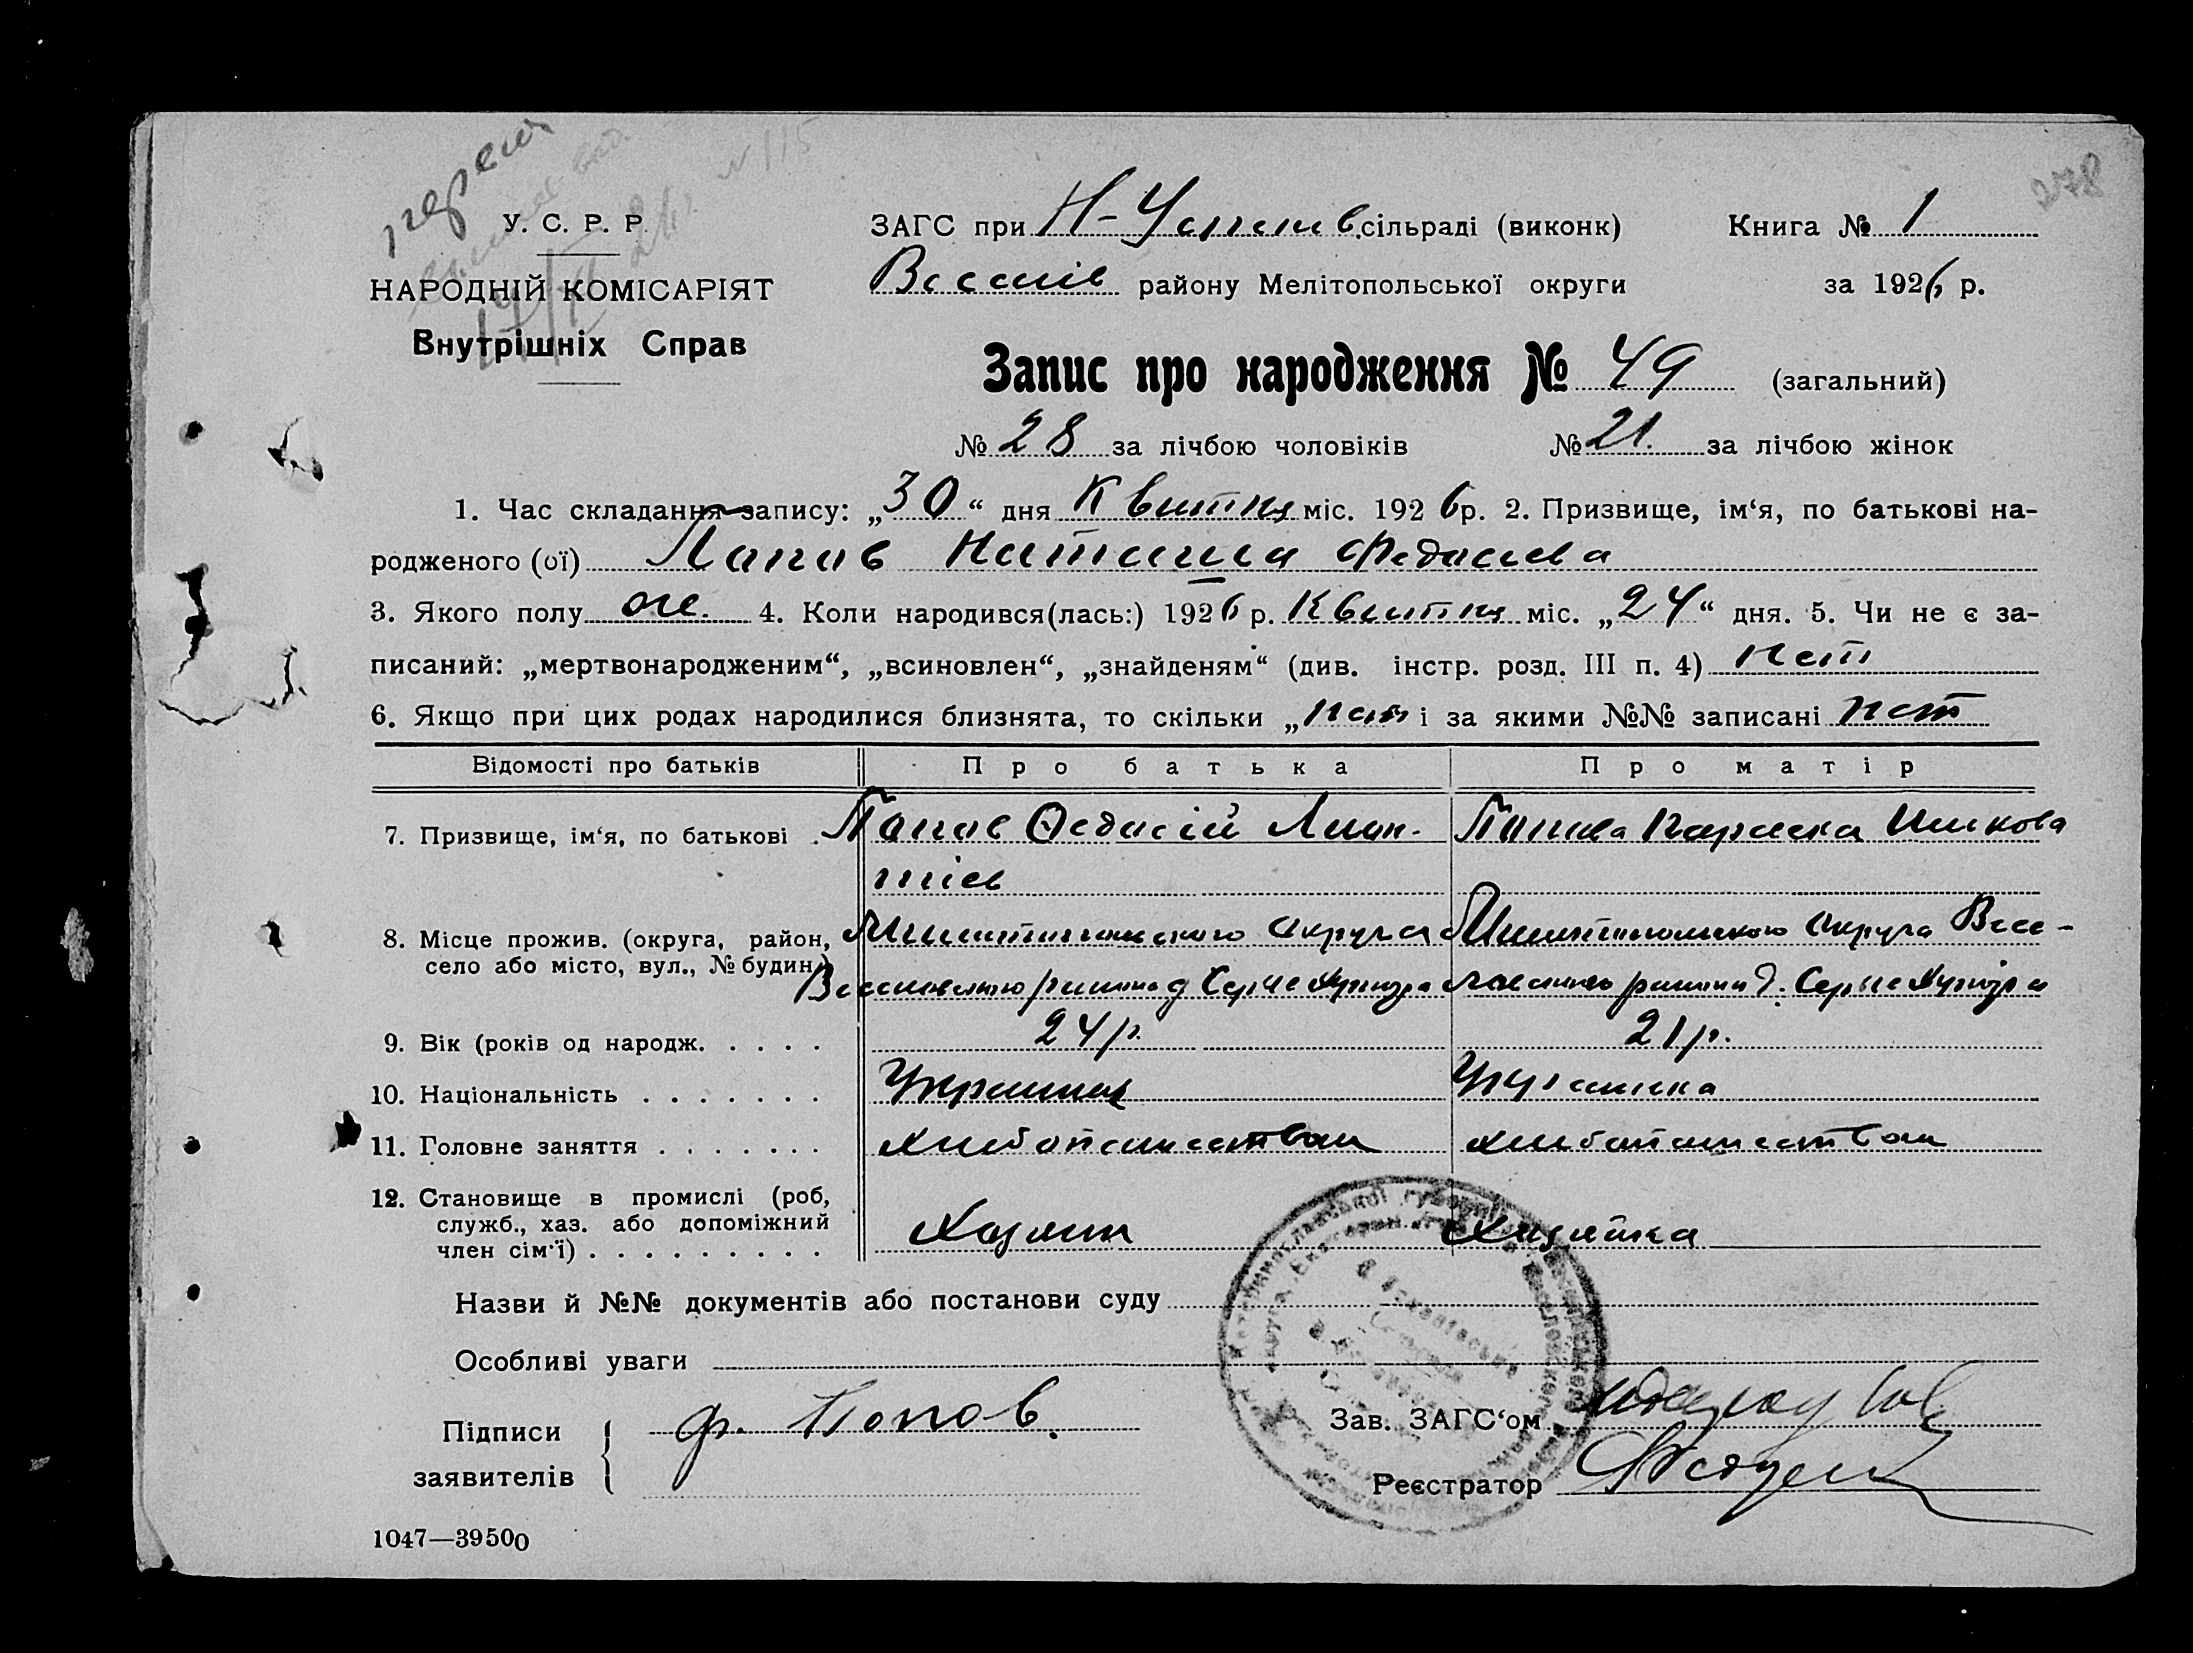 перев
№ 115
278
У. С. Р. Р.
НАРОДНІЙ КОМІСАРІЯТ
Внутрішніх Справ
ЗАГС при Н-Успенів. сільраді (виконк) Книга № 1
Веселів району Мелітопольської округи за 1926 р.
Запис про народження № 49 (загальний)
№ 28 за лічбою чоловіків № 21. за лічбою жінок
1. Час складання запису: „30“ дня Квитня міс. 1926 р. 2. Призвище, ім‘я, по батькові на-
родженого (ої) Попов Наталия Федосиева
3. Якого полу же. 4. Коли народився(лась:) 1926 р. Квитня міс. „24“ дня. 5. Чи не є за-
писаний: „мертвонародженим“, „всиновлен“, „знайденям“ (див. інстр. розд. III п. 4) нет
6. Якщо при цих родах народилися близнята, то скільки „нет і за якими №№ записані нет
Відомості про батьків Про батька Про матір
7. Призвище, ім‘я, по батькові . Попов Федосій Леон- Попова Параска
тіев
8. Місце прожив. (округа, район, Мелитопольского Округа Мелитопольского Округа Весе-
село або місто, вул., № будин.) Веселовского района д Сергеевка ловского района д.
9. Вік (років од народж. . . . . 24 р. 21 р.
10. Національність . . . . . . . Украинец Украинка
11. Головне заняття . . . . . . . хлебопашеством хлебопашеством
12. Становище в промислі (роб,
служб., хаз. або допоміжний Хозяин Хозяйка
член сім‘ї) . . . . . . . . .
Назви й №№ документів або постанови суду
Особливі уваги
Підписи заявителів ф. Попов.
Зав. ЗАГС‘ом
Реєстратор
1047—39500